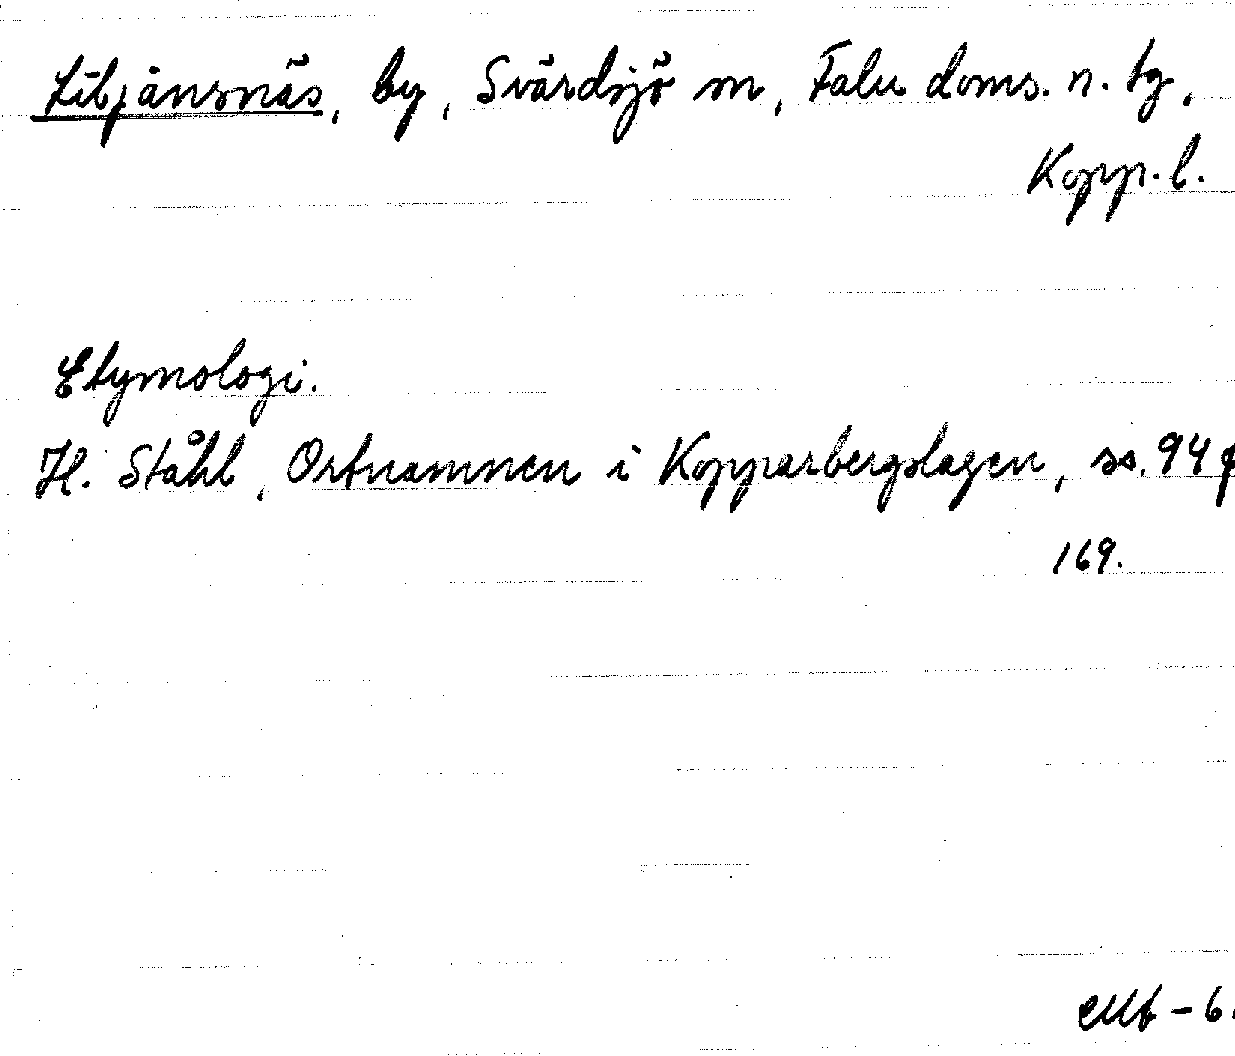 Liljansnäs, by, Svärdsjö sn, Falu doms. n. tg,
Kopp. l.
Etymologi.
H. Ståhl, Ortnamnen i Kopparbergslagen, ss. 94 f
169.